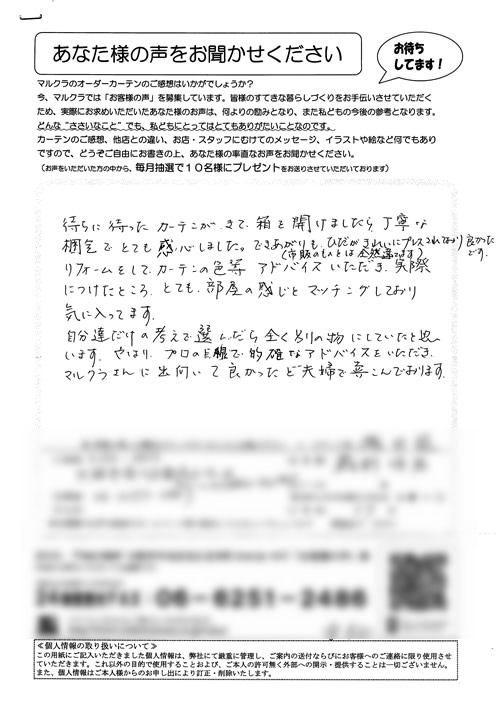 あなた様の声をお聞かせください
お待ち
してます！
マルクラのオーダーカーテンのご感想はいかがでしょうか？
今、マルクラでは「お客様の声」を募集しています。皆様のすてきな暮らしづくりをお手伝いさせていただく
ため、実際にお求めいただいたあなた様のお声は、何よりの励みとなり、また私どもの今後の参考となります。
どんな“ささいなこと”でも、私どもにとってはとてもありがたいことなのです。
カーテンのご感想、他店との違い、お店・スタッフにむけてのメッセージ、イラストや絵など何でもあり
ですので、どうぞご自由にお書きの上、あなた様の率直なお声をお聞かせください。
（お声をいただいた方の中から、毎月抽選で１０名様にプレゼントをお送りさせていただいております）
待ちに待ったカーテンがきて、箱を開けましたら、丁寧な
梱包でとても感心しました。できあがりも、ひだがきれいにプレスされており良かったです。
（市販のものとは全然違います）
リフォームをして、カーテンの色等アドバイスいただき、実際
につけたところ、とても、部屋の感じとマッチングしており
気に入ってます。
自分達だけの考えで選んだら全く別の物にしていたと思
います。やはり、プロの目線で的確なアドバイスをいただき、
マルクラさんに出向いて良かったと夫婦で喜こんでおります。
06-6251-2486
≪個人情報の取り扱いについて≫
この用紙にご記入いただきました個人情報は、弊社にて厳重に管理し、ご案内の送付ならびにお客様へのご連絡に限り使用させ
ていただきます。これ以外の目的で使用することおよび、ご本人の許可無く外部への開示・提供することは一切ございません。
また、個人情報はご本人様からのお申し出により訂正・削除いたします。